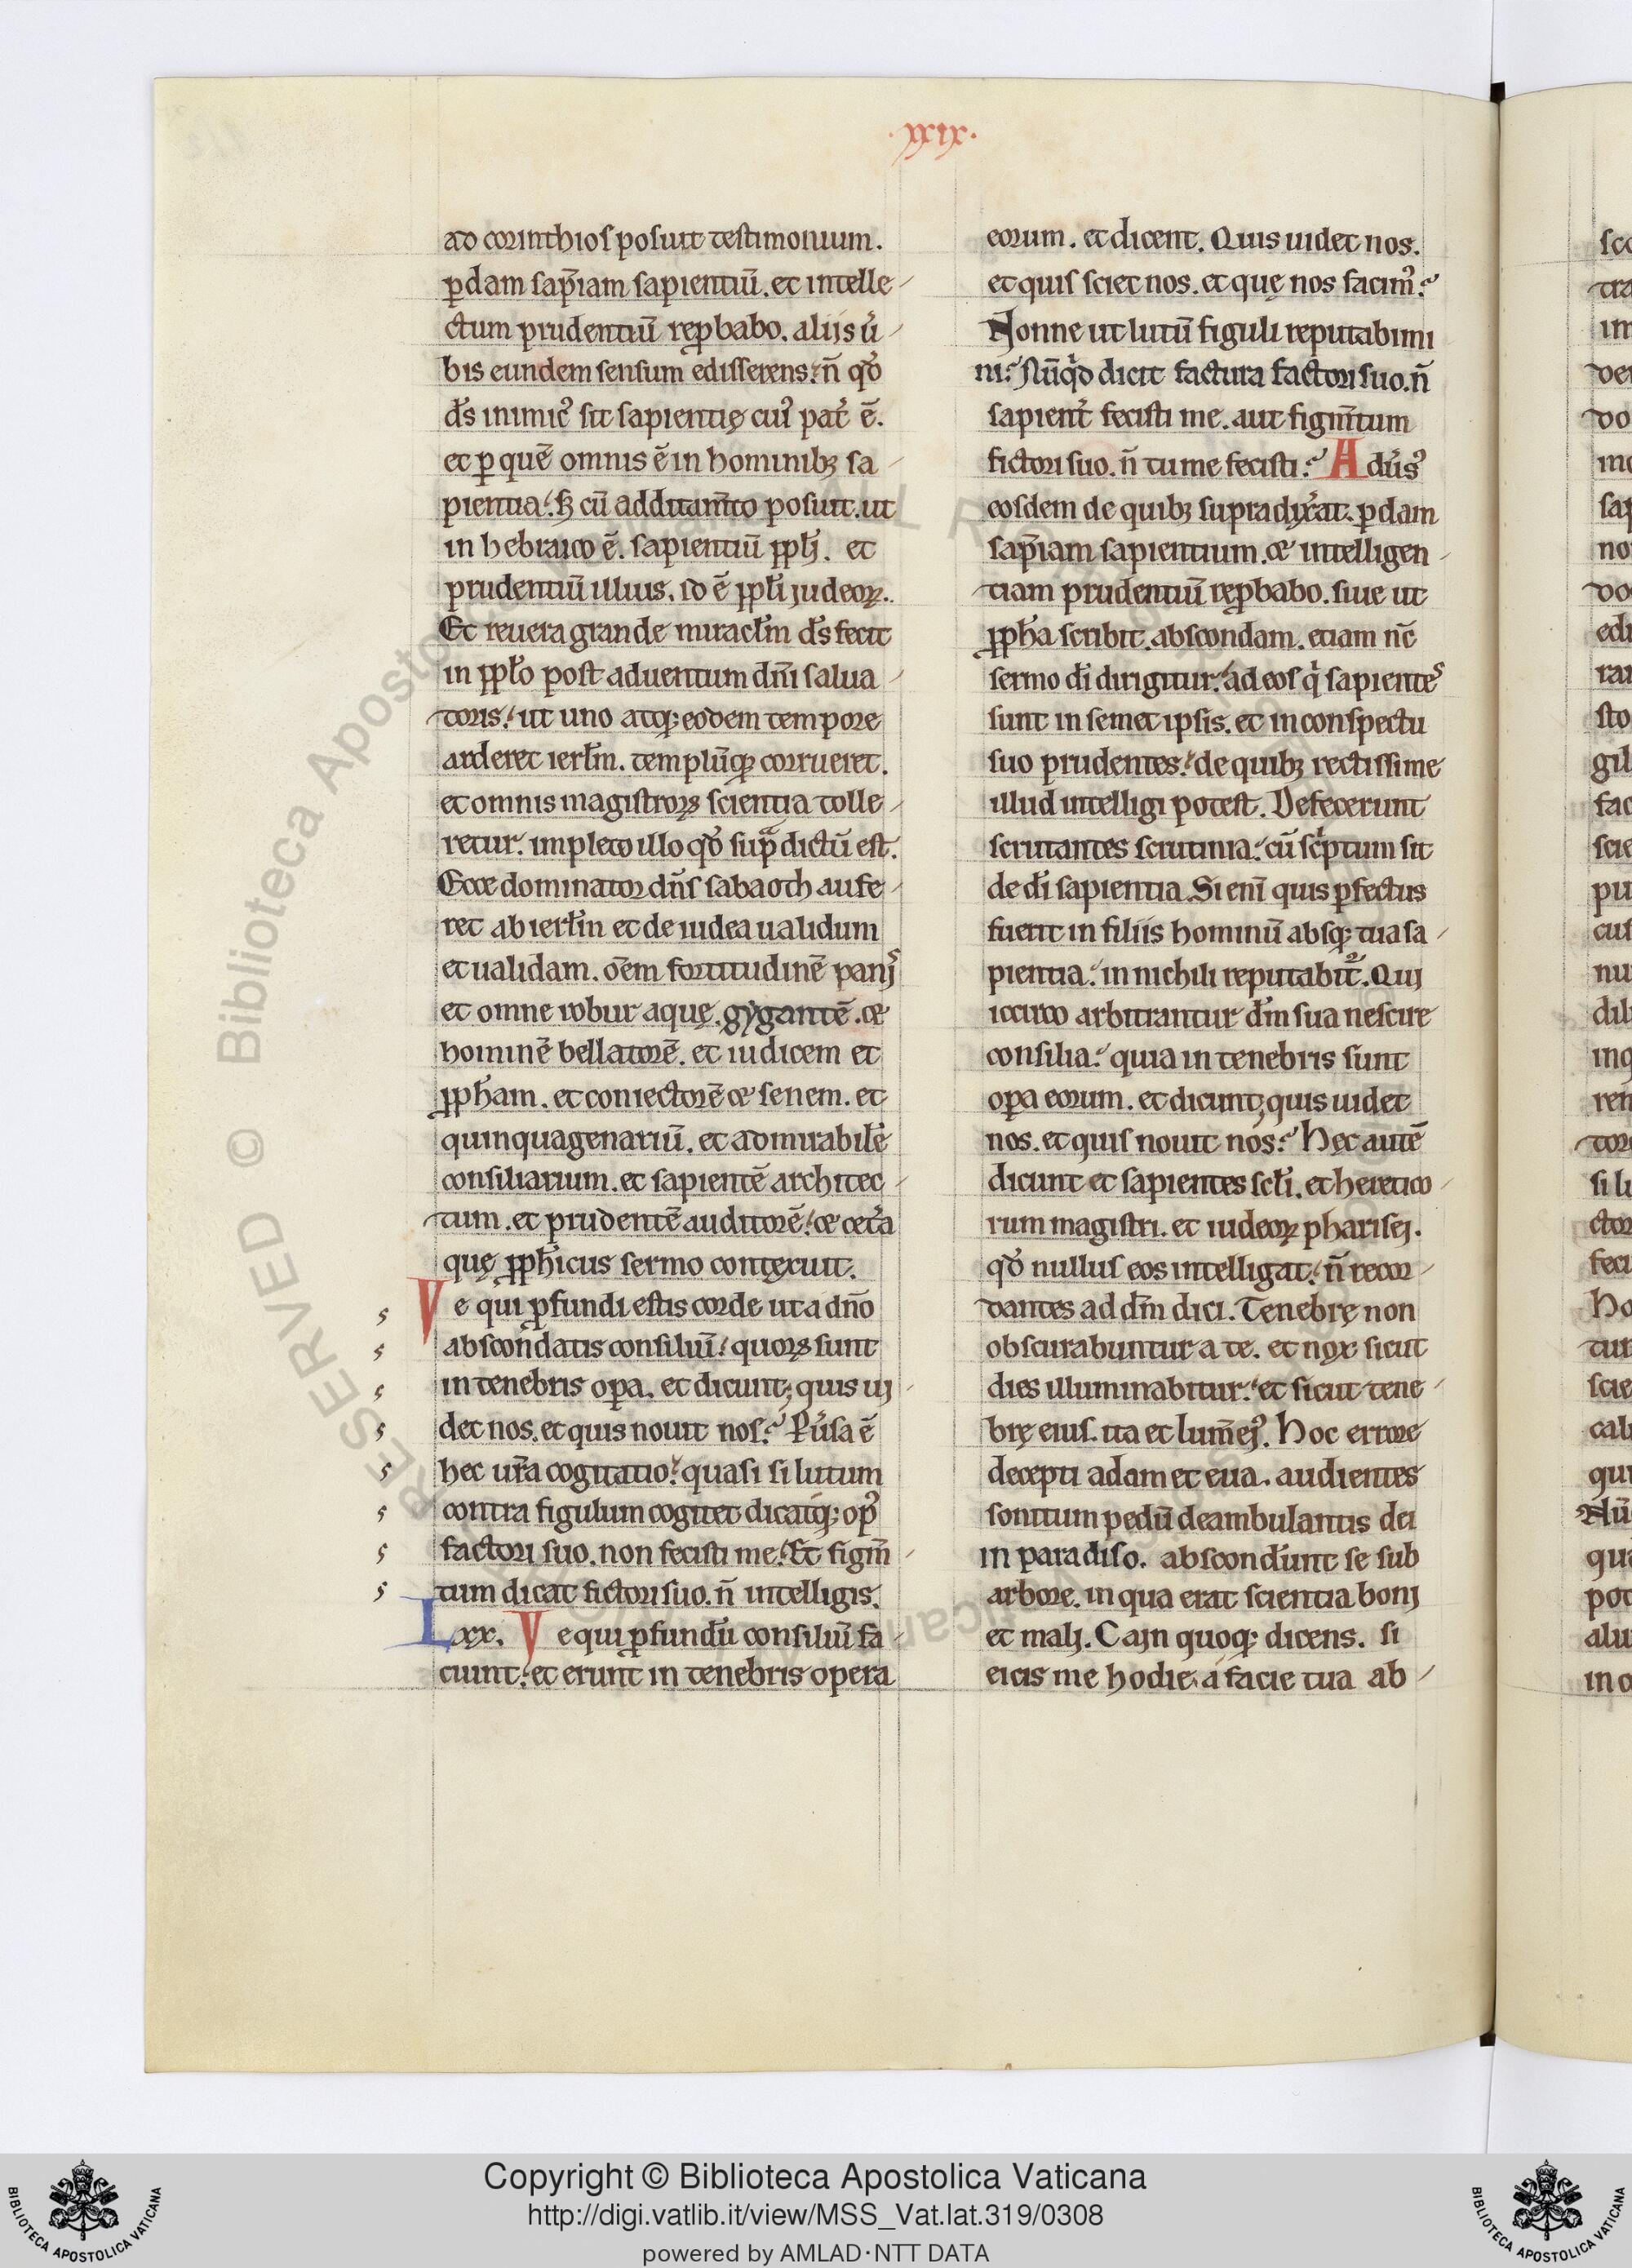 .xxix.
ad corinthios posuit testimonium.
ꝑdam sap̄iam sapientiū. et intelle-
ctum prudentiū reꝓbabo. aliis ũ-
bis eundem sensum edisserens. ñ qđ
dſ̄ inimicꝰ sit sapientię cuiꝰ pat̄ ē.
et ꝑ quē omnis ē in hominibꝫ sa-
pientia. sꝫ cū additam̄to posuit. ut
in hebraico ē. sapientiū ppłi. et
prudentiū illius. id ē ppłi iudeoꝝ.
Et reuera grande miracłm dſ̄ fecit
in ppło post aduentum dñi salua-
toris. ut uno atqꝫ eodem tempore
arderet ierłm. templūqꝫ corrueret.
et omnis magistroꝝ scientia tolle-
retur. impleto illo qđ supᵃ dictū est.
Ecce dominator dñs sabaoth aufe-
ret ab ierłm et de iudea ualidum
et ualidam. oēm fortitudinē panis
et omne robur aquę. gygantē. et
hominē bellatorē. et iudicem et
ꝓpħam. et coniectorē et senem. et
quinquagenariū. et admirabilē
consiliarium. et sapientē architec-
tum. et prudentē auditorē. et cet̄a
quę ꝓpħicus sermo contexuit.
Ve qui ꝓfundi estis corde ut a dño
abscondatis consiliū. quoꝝ sunt
in tenebris oꝑa. et dicunt; quis ui-
det nos. et quis nouit nos? Ꝑũsa ē
hec ur̄a cogitatio. quasi si lutum
contra figulum cogitet dicatqꝫ opꝰ
factori suo. non fecisti me. Et figm̄-
tum dicat fictori suo. ñ intelligis.
Lxx. Ve qui ꝓfundū consiliū fa-
ciunt. et erunt in tenebris opera
eorum. et dicent. Quis uidet nos.
et quis sciet nos. et quę nos facimꝰ?
Nonne ut lutū figuli reputabimi
ni? Nūqͥd dicit factura factori suo. ñ
sapient̄ fecisti me. aut figm̄tum
fictori suo. ñ tu me fecisti? Adũsꝰ
eosdem de quibꝫ supra dix̄at. ꝑdam
sap̄iam sapientium. et intelligen-
tiam prudentiū reꝓbabo. siue ut
ꝓpħa scribit. abscondam. etiam nc̄
sermo di dirigitur. ad eos qͥ sapientes
sunt in semet ipsis. et in conspectu
suo prudentes. de quibꝫ rectissime
illud intelligi potest. Defecerunt
scrutantes scrutinia. cū scͥptum sit
de di sapientia. Si enī quis ꝑfectus
fuerit in filiis hominū absqꝫ tua sa-
pientia. in nichili reputabit̄. Qui
iccirco arbitrantur dm̄ sua nescire
consilia. quia in tenebris sunt
oꝑa eorum. et dicunt; quis uidet
nos. et quis nouit nos? Hęc autē
dicunt et sapientes scłi. et heretico-
rum magistri. et iudeoꝝ pharisei.
qđ nullus eos intelligat. ñ recor-
dantes ad dm̄ dici. Tenebrę non
obscurabuntur a te. et nox sicut
dies illuminabitur. et sicut tene-
brę eius. ita et lum̄ eiꝰ. Hoc errore
decepti adam et eua. audientes
sonitum pedū deambulantis dei
in paradiso. abscondũnt se sub
arbore. in qua erat scientia boni
et mali. Cain quoqꝫ dicens. si
eicis me hodie a facie tua ab-
Copyright © Biblioteca Apostolica Vaticana
http://digi.vatlib.it/view/MSS_Vat.lat.319/0308
powered by AMLAD·NTT DATA
BIBLIOTECA APOSTOLICA VATICANA
BIBLIOTECA APOSTOLICA VATICANA